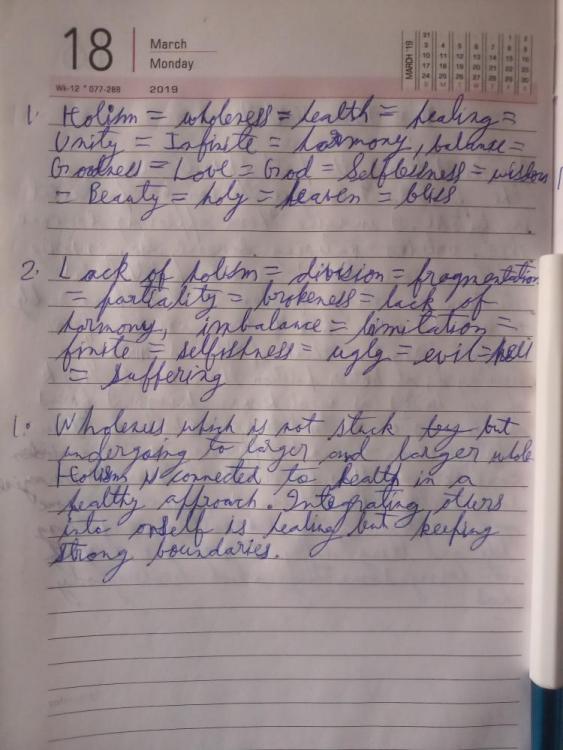 18 March
Monday
Wk-12 * 077-288 2019
MARCH '19
1. Holism = wholeness = health = healing =
Unity = Infinite = harmony, balance =
Goodness = Love = God = Selflessness = wisdom
= Beauty = holy = heaven = bliss
2. Lack of holism = division = fragmentation
= partiality = brokeness = lack of
harmony, imbalance = limitation =
finite = selfishness = ugly = evil = hell
= suffering
1. Wholeness which is not stuck but
undergoing to larger and larger whole
Holism is connected to health in a
healthy approach. Integrating others
into onself is healing but keeping
strong boundaries.